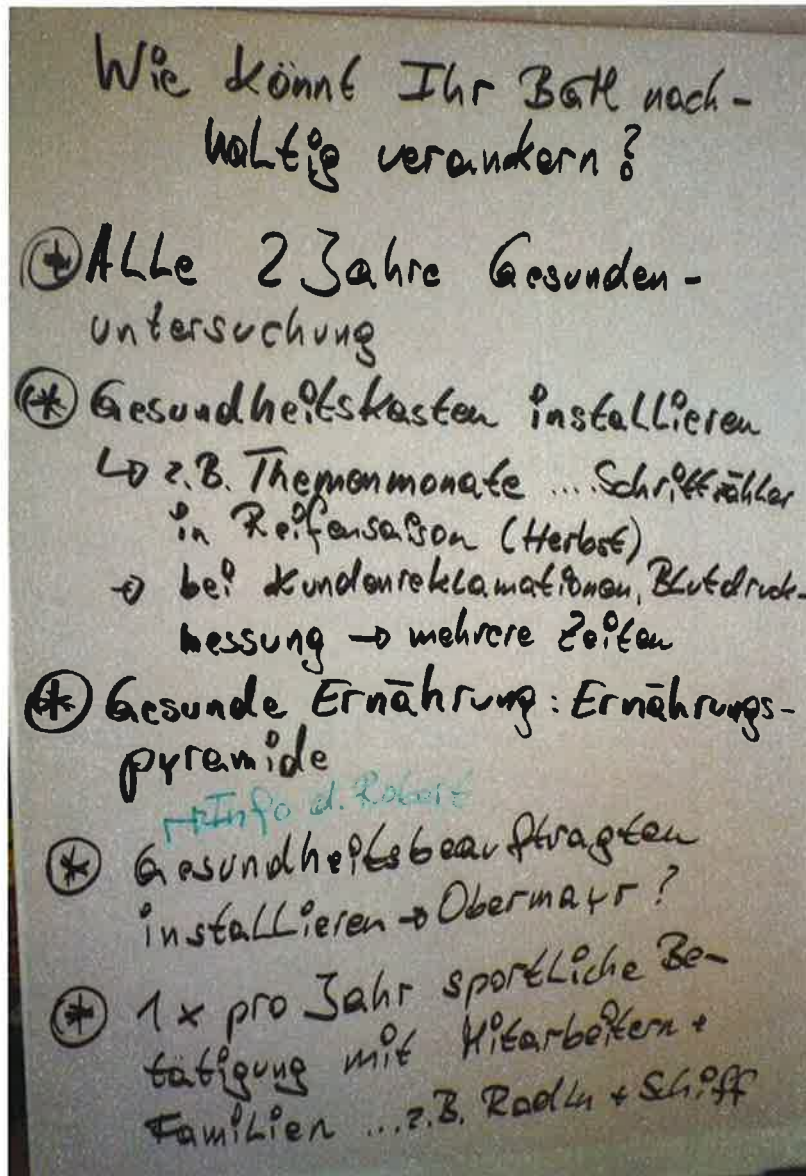 Wie könnt Ihr BGM nach-
haltig verankern?
* Alle 2 Jahre Gesunden-
untersuchung
* Gesundheitskasten installieren
↳ z.B. Themenmonate .... Schrittzähler
in Reifensaison (Herbst)
→ bei Kundenreklamationen, Blutdruck-
messung → mehrere Zeiten
* Gesunde Ernährung: Ernährungs-
pyramide
↦ Info d. Robert
* Gesundheitsbeauftragten
installieren → Obermayr?
* 1x pro Jahr sportliche Be-
tätigung mit Mitarbeitern +
Familien ... z.B. Radln + Schiff